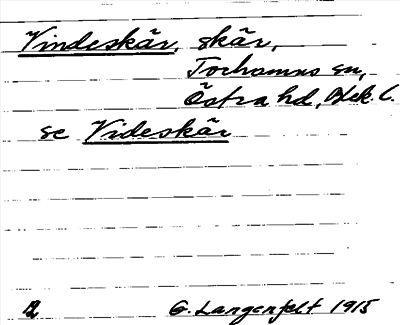 Vindeskär, skär,
Torhamns sn,
Östra hd, Blek. l.
se Videskär
G. Langenfelt 1915